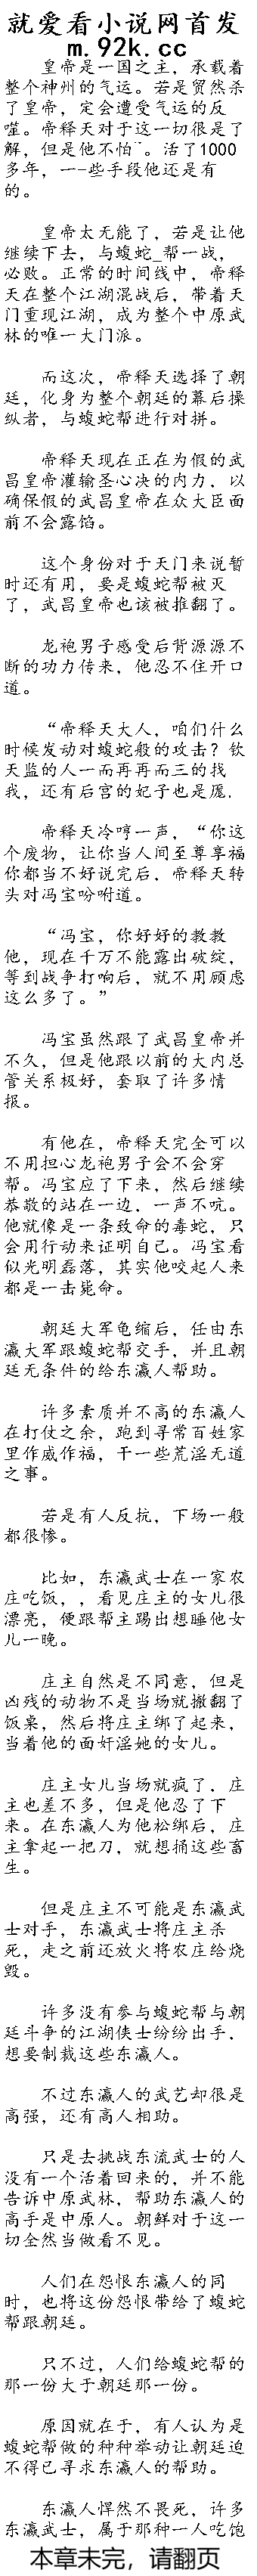 就爱看小说网首发
m.92k.cc
皇帝是一国之主，承载着
整个神州的气运。若是贸然杀
了皇帝，定会遭受气运的反
噬。帝释天对于这一切很是了
解，但是他不怕ˇ。活了1000
多年，一-些手段他还是有
的。
皇帝太无能了，若是让他
继续下去，与蝮蛇_帮一战，
必败。正常的时间线中，帝释
天在整个江湖混战后，带着天
门重现江湖，成为整个中原武
林的唯一大门派。
而这次，帝释天选择了朝
廷，化身为整个朝廷的幕后操
纵者，与蝮蛇帮进行对拼。
帝释天现在正在为假的武
昌皇帝灌输圣心决的内力，以
确保假的武昌皇帝在众大臣面
前不会露馅。
这个身份对于天门来说暂
时还有用，要是蝮蛇帮被灭
了，武昌皇帝也该被推翻了。
龙袍男子感受后背源源不
断的功力传来，他忍不住开口
道。
“帝释天大人，咱们什么
时候发动对蝮蛇般的攻击？钦
天监的人一而再再而三的找
我，还有后宫的妃子也是愿.
帝释天冷哼一声，“你这
个废物，让你当人间至尊享福
你都当不好说完后，帝释天转
头对冯宝吩咐道。
“冯宝，你好好的教教
他，现在千万不能露出破绽，
等到战争打响后，就不用顾虑
这么多了。”
冯宝虽然跟了武昌皇帝并
不久，但是他跟以前的大内总
管关系极好，套取了许多情
报。
有他在，帝释天完全可以
不用担心龙袍男子会不会穿
帮。冯宝应了下来，然后继续
恭敬的站在一边，一声不吭。
他就像是一条致命的毒蛇，只
会用行动来证明自己。冯宝看
似光明磊落，其实他咬起人来
都是一击毙命。
朝廷大军龟缩后，任由东
瀛大军跟蝮蛇帮交手，并且朝
廷无条件的给东瀛人帮助。
许多素质并不高的东瀛人
在打仗之余，跑到寻常百姓家
里作威作福，干一些荒淫无道
之事。
若是有人反抗，下场一般
都很惨。
比如，东瀛武士在一家农
庄吃饭，，看见庄主的女儿很
漂亮，便跟帮主踢出想睡他女
儿一晚。
庄主自然是不同意，但是
凶残的动物不是当场就搬翻了
饭桌，然后将庄主绑了起来，
当着他的面奸淫她的女儿。
庄主女儿当场就疯了，庄
主也差不多，但是他忍了下
来。在东瀛人为他松绑后，庄
主拿起一把刀，就想捅这些畜
生。
但是庄主不可能是东瀛武
士对手，东瀛武士将庄主杀
死，走之前还放火将农庄给烧
毁。
许多没有参与蝮蛇帮与朝
廷斗争的江湖侠士纷纷出手，
想要制裁这些东瀛人。
不过东瀛人的武艺却很是
高强，还有高人相助。
只是去挑战东流武士的人
没有一个活着回来的，并不能
告诉中原武林，帮助东瀛人的
高手是中原人。朝鲜对于这一
切全然当做看不见。
人们在怨恨东瀛人的同
时，也将这份怨恨带给了蝮蛇
帮跟朝廷。
只不过，人们给蝮蛇帮的
那一份大于朝廷那一份。
原因就在于，有人认为是
蝮蛇帮做的种种举动让朝廷迫
不得已寻求东瀛人的帮助。
东瀛人悍然不畏死，许多
东瀛武士，属于那种一人吃饱
本章未完，请翻页